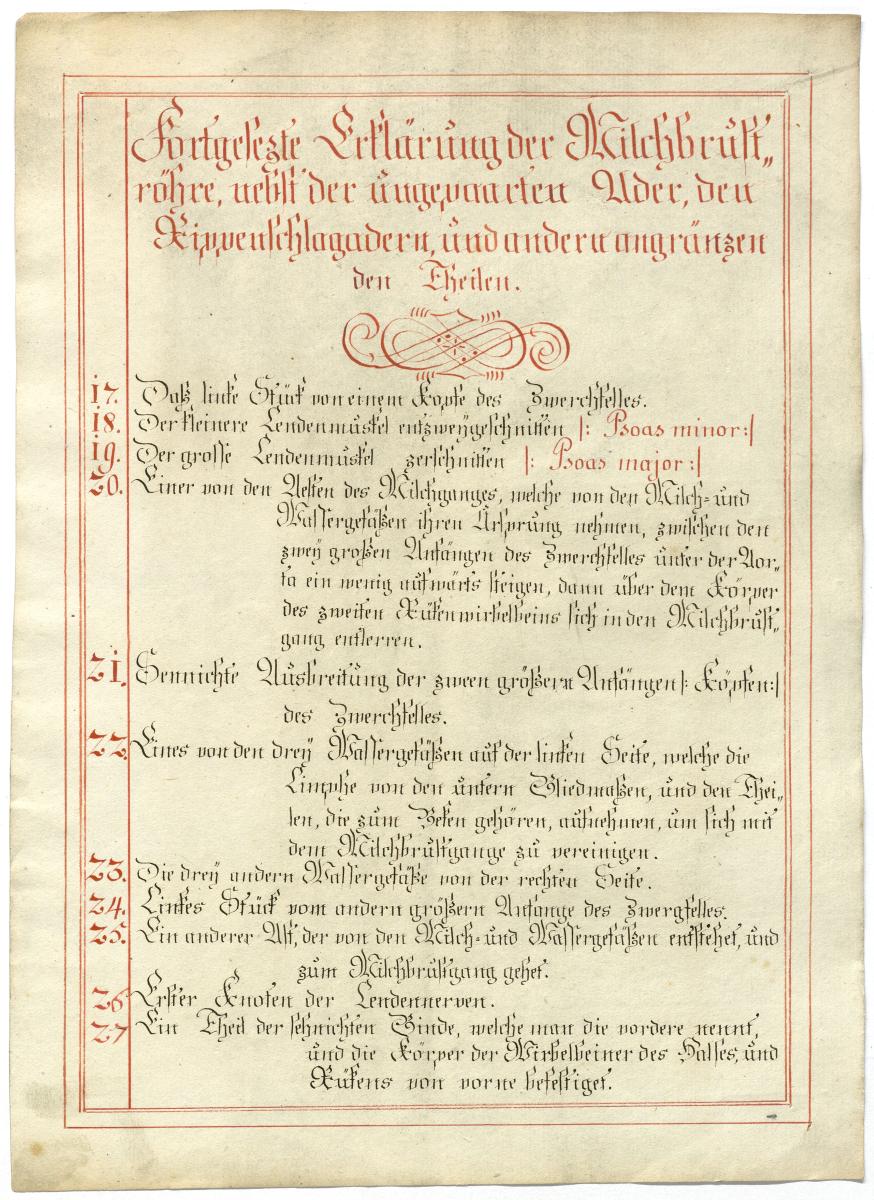 Fortgesezte Erklärung der Milchbrust„
röhre, nebst der ungepaarten Ader, den
Rippenschlagadern, und andern angränzen
den Theilen.
17. Daß linke Stück von einem Kopfe des Zwerchfelles.
18. Der kleinere Lendenmuskel entzweygeschnitten |: Psoas minor :|
19. Der grosse Lendenmuskel zerschnitten |: Psoas major :|
20. Einer von den Aesten des Milchganges, welche von den Milch= und
Wassergefäßen ihren Ursprung nehmen, zwischen den
zwey großen Anfängen des Zwerchfelles unter der Aor„
ta ein wenig aufwärts steigen, dann über dem Körper
des zweiten Rükenwirbelbeins sich in den Milchbrust„
gang entlerren.
21. Sennichte Ausbreitung der zween größern Anfängen |: Köpfen :|
des Zwerchfelles.
22. Eines von den drey Wassergefäßen auf der linken Seite, welche die
Limphe von den untern Gliedmaßen, und den Thei„
len, die zum Beken gehören, aufnehmen, um sich mit
dem Milchbrustgange zu vereinigen.
23. Die drey andern Wassergefäße von der rechten Seite.
24. Linkes Stück vom andern größern Anfange des Zwergfelles.
25. Ein anderer Ast, der von den Milch= und Wassergefäßen entstehet, und
zum Milchbrustgang gehet.
26 Erster Knoten der Lendennerven.
27 Ein Theil der sehnichten Binde, welche man die vordere nennt,
und die Körper der Wirbelbeiner des Halses, und
Rükens von vorne befestiget.